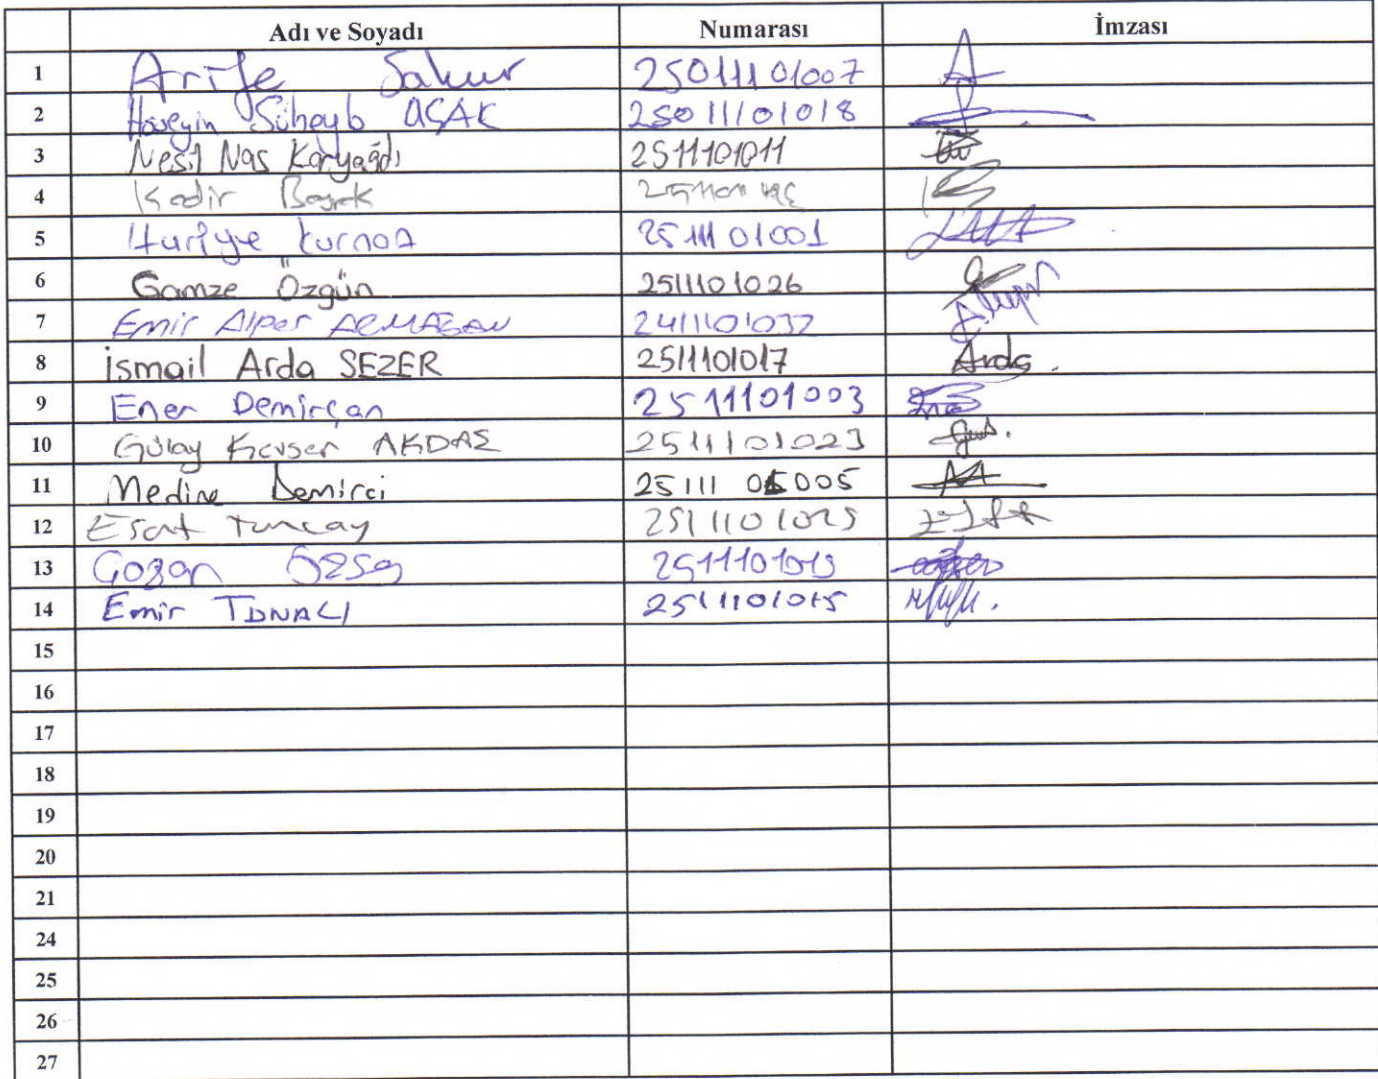 Adı ve Soyadı Numarası İmzası
1 Arife Sakur 25011101007
2 Hüseyin Süheyb UÇAK 25011101018
3 Nesil Nas Karyağdı 2511101011
4 Kadir
5 Huriye Kurnaz 2511101001
6 Gamze Özgün 2511101026
7 Emir Alper ARMAĞAN 2411101037
8 İsmail Arda SEZER 2511101017 Arda
9 Ener Demirçan 2511101003
10 Gülay Kevser AKDAŞ 2511101023
11 Medine Demirci 2511101005
12 Esat Tuncay 2511101025
13 2511101013
14 Emir TONALI 2511101015
15
16
17
18
19
20
21
24
25
26
27